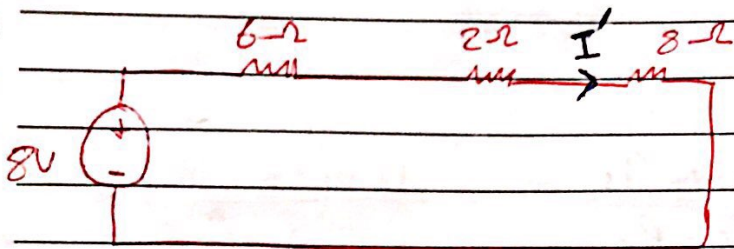 6Ω 2Ω I' 8Ω
8V